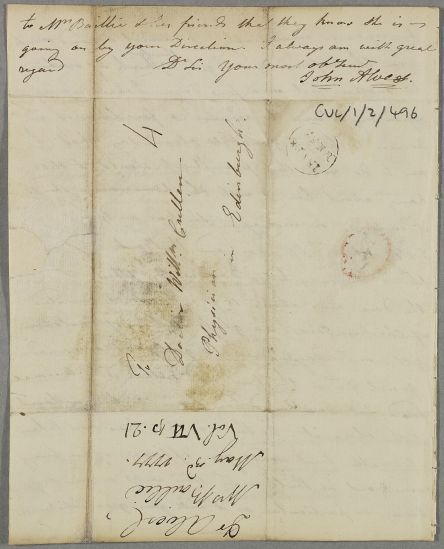 to Mrs Baillie & her friends that they know she is
going on by your Direction. I always am with great
regard Dr Sir Your most obt Servt
John Alves.
CUL/1/2/496
4
To
Doctor Willm Cullen
Physician in Edinburgh.
Dr Alves,
Mrs Baillie
May 3d. 1777.
Vol. VII p. 21